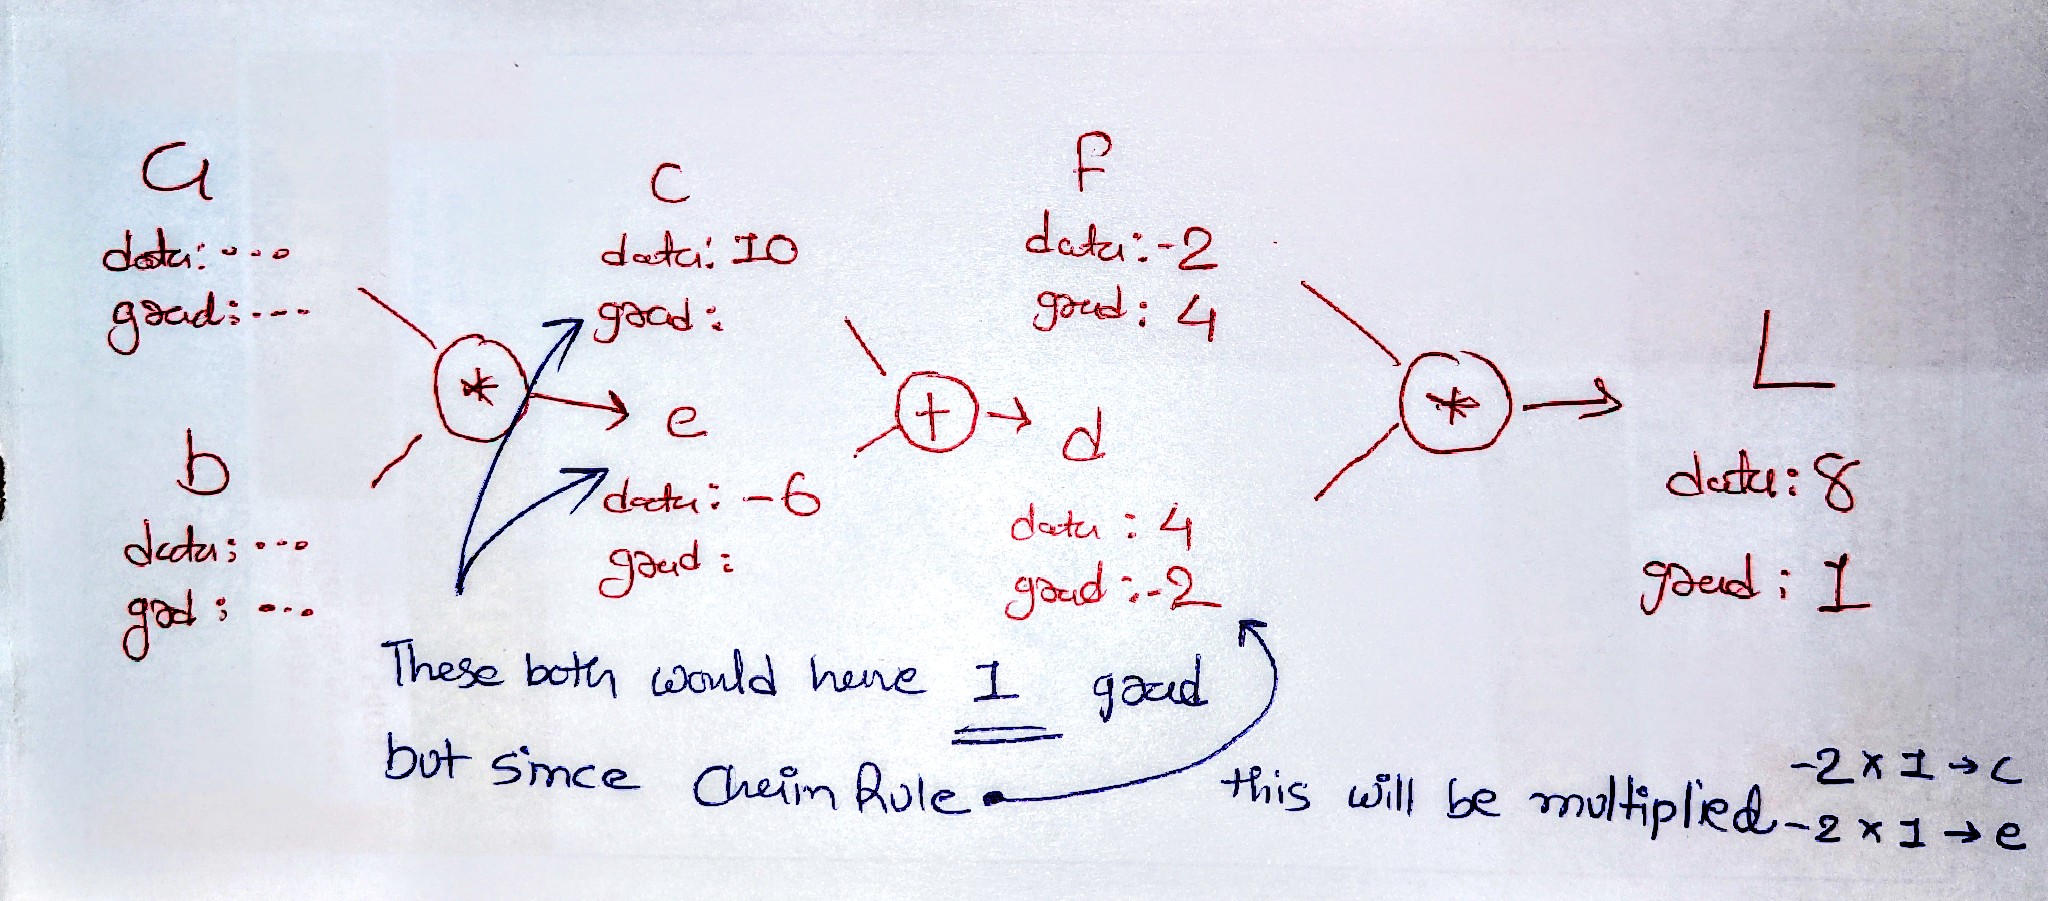 a
data: ...
grad: ...
b
data: ...
grad: ...
*
c
data: 10
grad:
e
data: -6
grad:
+
f
data: -2
grad: 4
d
data: 4
grad: -2
*
L
data: 8
grad: 1
These both would have 1 grad
but since Chain Rule
this will be multiplied
-2 x 1 → c
-2 x 1 → e